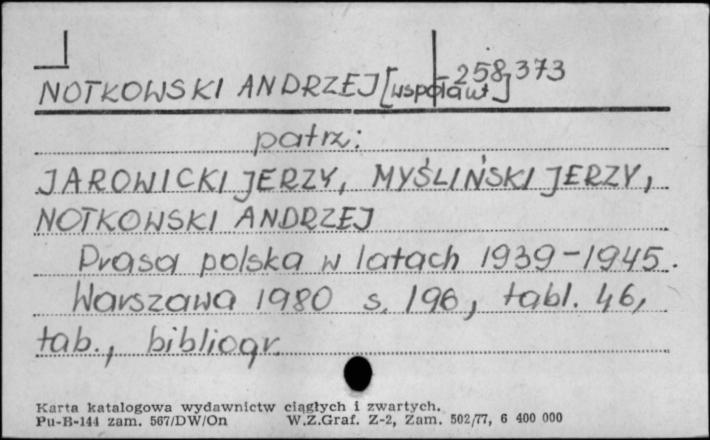 258,373
NOTKOWSKI ANDRZEJ [współaut]
patrz:
JAROWICKI JERZY, MYŚLIŃSKI JERZY,
NOTKOWSKI ANDRZEJ
Prasa polska w latach 1939-1945.
Warszawa 1980 s. 196, tabl. 46,
tab., bibliogr.
Karta katalogowa wydawnictw ciągłych i zwartych.
Pu-B-144 zam. 567/DW/On W.Z.Graf. Z-2, Zam. 502/77, 6 400 000